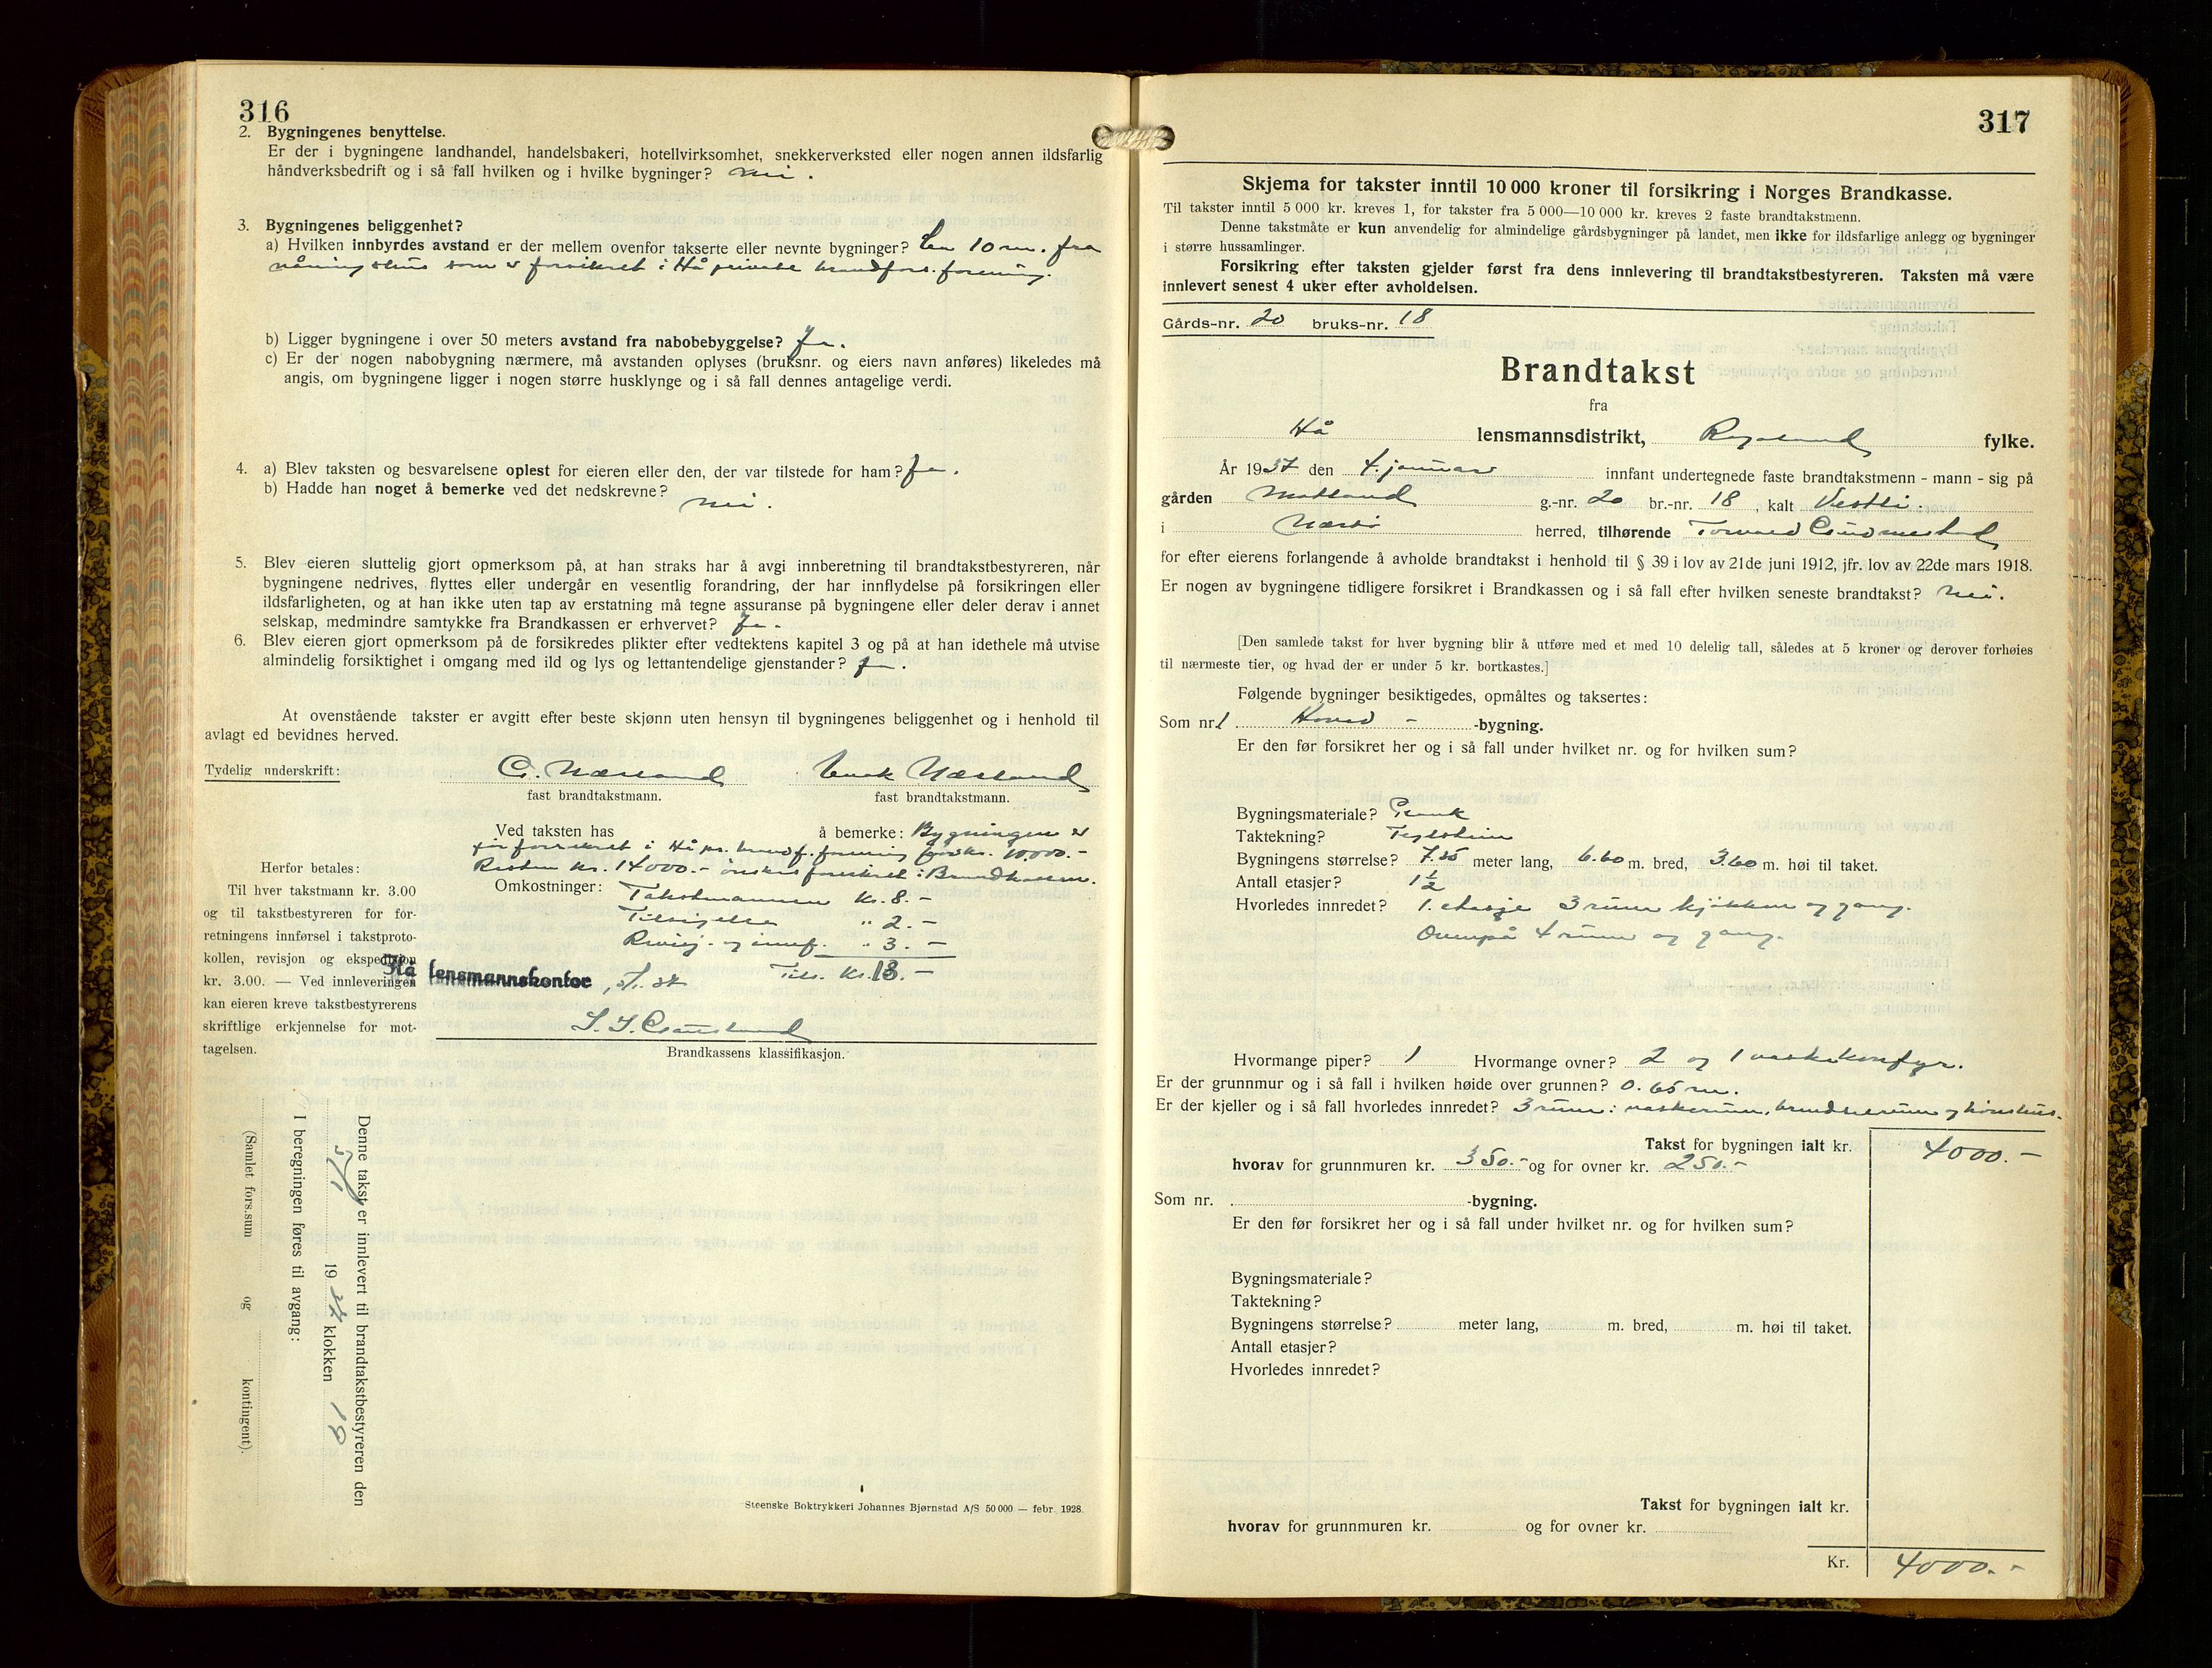 316
2. Bygningenes benyttelse.
Er der i bygningene landhandel, handelsbakeri, hotellvirksomhet, snekkerverksted eller nogen annen ildsfarlig
håndverksbedrift og i så fall hvilken og i hvilke bygninger? nei.
3. Bygningenes beliggenhet?
a) Hvilken innbyrdes avstand er der mellem ovenfor takserte eller nevnte bygninger? Ca 10 m. fra
våningshus som er forsikret i Hå private brandfors. forening.
b) Ligger bygningene i over 50 meters avstand fra nabobebyggelse? Ja.
c) Er der nogen nabobygning nærmere, må avstanden oplyses (bruksnr. og eiers navn anføres) likeledes må
angis, om bygningene ligger i nogen større husklynge og i så fall dennes antagelige verdi.
4. a) Blev taksten og besvarelsene oplest for eieren eller den, der var tilstede for ham? Ja.
b) Hadde han noget å bemerke ved det nedskrevne?
nei.
5. Blev eieren sluttelig gjort opmerksom på, at han straks har å avgi innberetning til brandtakstbestyreren, når
bygningene nedrives, flyttes eller undergår en vesentlig forandring, der har innflydelse på forsikringen eller
ildsfarligheten, og at han ikke uten tap av erstatning må tegne assuranse på bygningene eller deler derav i annet
selskap, medmindre samtykke fra Brandkassen er erhvervet? Ja.
6. Blev eieren gjort opmerksom på de forsikredes plikter efter vedtektens kapitel 3 og på at han idethele må utvise
almindelig forsiktighet i omgang med ild og lys og lettantendelige gjenstander? Ja.
At ovenstående takster er avgitt efter beste skjønn uten hensyn til bygningenes beliggenhet og i henhold til
avlagt ed bevidnes herved.
Tydelig underskrift: G. Næsland Næsland
fast brandtakstmann. fast brandtakstmann.
Ved taksten has å bemerke: Bygningen er
før forsikret i Hå pr. brandf. forening for kr. 10.000.-
Resten kr. 14000.- ønskes forsikret i Brandkassen.
Omkostninger: Takstmannen Kr. 8.-
Tilsigelse " 2.-
Revisj. og innf. " 3.-
Tils. Kr. 13.-
Herfor betales:
Til hver takstmann kr. 3.00
og til takstbestyreren for for-
retningens innførsel i takstproto-
kollen, revisjon og ekspedisjon
kr. 3.00. — Ved innleveringen
kan eieren kreve takstbestyrerens
skriftlige erkjennelse for mot-
tagelsen.
Hå lensmannskontor, 5/1. 37
Brandkassens klassifikasjon.
Denne takst er innlevert til brandtakstbestyreren den
5/1 19 37 klokken 18
I beregningen føres til avgang:
(Samlet fors.sum og kontingent).
Steenske Boktrykkeri Johannes Bjørnstad A/S 50 000 — febr. 1928.
317
Skjema for takster inntil 10 000 kroner til forsikring i Norges Brandkasse.
Til takster inntil 5 000 kr. kreves 1, for takster fra 5 000—10 000 kr. kreves 2 faste brandtakstmenn.
Denne takstmåte er kun anvendelig for almindelige gårdsbygninger på landet, men ikke for ildsfarlige anlegg og bygninger
i større hussamlinger.
Forsikring efter taksten gjelder først fra dens innlevering til brandtakstbestyreren. Taksten må være
innlevert senest 4 uker efter avholdelsen.
Gårds-nr. 20 bruks-nr. 18
Brandtakst
fra
Hå lensmannsdistrikt, Rogaland fylke.
År 1937 den 4. januar innfant undertegnede faste brandtakstmenn - mann - sig på
gården Motland g.-nr. 20 br.-nr. 18, kalt Vestli.
i Nærbø herred, tilhørende Torvald Gudmestad
for efter eierens forlangende å avholde brandtakst i henhold til § 39 i lov av 21de juni 1912, jfr. lov av 22de mars 1918.
Er nogen av bygningene tidligere forsikret i Brandkassen og i så fall efter hvilken seneste brandtakst? nei.
[Den samlede takst for hver bygning blir å utføre med et med 10 delelig tall, således at 5 kroner og derover forhøies
til nærmeste tier, og hvad der er under 5 kr. bortkastes.]
Følgende bygninger besiktigedes, opmåltes og taksertes:
Som nr. 1 Hoved - -bygning.
Er den før forsikret her og i så fall under hvilket nr. og for hvilken sum?
Bygningsmateriale? Plank
Taktekning? Teglstein
Bygningens størrelse? 7.35 meter lang, 6.60 m. bred, 3.60 m. høi til taket.
Antall etasjer? 1½
Hvorledes innredet? 1. etasje 3 rum kjøkken og gang.
Ovenpå 4 rum og gang.
Hvormange piper? 1 Hvormange ovner? 2 og 1 vaskekomfyr.
Er der grunnmur og i så fall i hvilken høide over grunnen? 0.65 m.
Er der kjeller og i så fall hvorledes innredet? 3 rum: vaskerum, brendselrum og hønshus.
Takst for bygningen ialt kr. 4000.-
hvorav for grunnmuren kr. 350.- og for ovner kr. 250.-
Som nr. -bygning.
Er den før forsikret her og i så fall under hvilket nr. og for hvilken sum?
Bygningsmateriale?
Taktekning?
Bygningens størrelse? meter lang, m. bred, m. høi til taket.
Antall etasjer?
Hvorledes innredet?
Takst for bygningen ialt kr.
hvorav for grunnmuren kr. og for ovner kr.
Kr. 4000.-